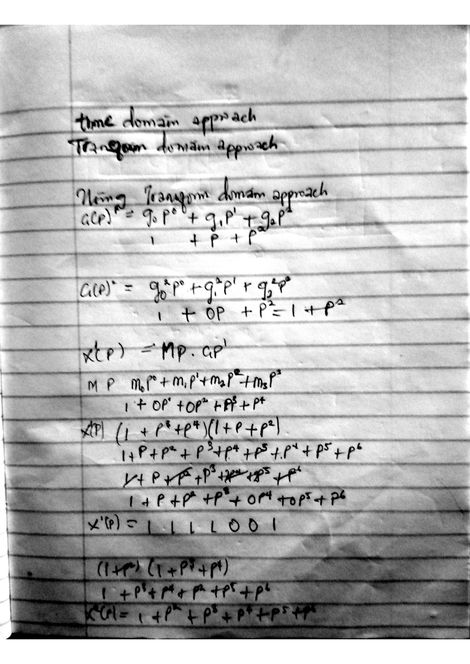 time domain approach
Transform domain approach
Using Transform domain approach
G(P)¹ = g₀P⁰ + g₁P¹ + g₂P²
1 + P + P²
G(P)² = g₀²P⁰ + g₁²P¹ + g₂²P²
1 + 0P + P² = 1 + P²
X¹(P) = MP . GP¹
M P m₀P⁰ + m₁P¹ + m₂P² + m₃P³
1 + 0P¹ + 0P² + P³ + P⁴
X(P) (1 + P³ + P⁴)(1 + P + P²)
1 + P + P² + P³ + P⁴ + P⁵ + P⁴ + P⁵ + P⁶
1 + P + P² + P³ + 2P⁴ + 2P⁵ + P⁶
1 + P + P² + P³ + 0P⁴ + 0P⁵ + P⁶
X¹(P) = 1 1 1 1 0 0 1
(1+P²) (1 + P³ + P⁴)
1 + P³ + P⁴ + P² + P⁵ + P⁶
X²(P) = 1 + P² + P³ + P⁴ + P⁵ + P⁶